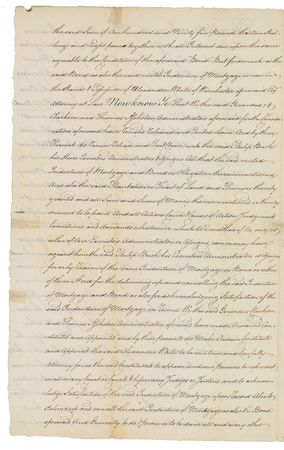 the said Sum of One hundred and Ninety five Pounds thirteen Shil
lings and Eight pence together with all Interest due upon the same
agreeable to the Condition of the aforesaid Bond. But forasmuch as the
said Bond as also the said recited Indenture of Mortgage is now in
the Hands & Possession of Alexander White of Winchester aforesaid
Attorney at Law Now know Ye That We the said
Clarkson and Thomas Administrators aforesaid for the Conside
ration aforesaid have Remised Released and Quited Claim And by these
Presents do Remise Release and Quit Claim unto the said Philip Bush
his Heirs Executors Administrators & Assigns All that the said recited
Indenture of Mortgage and Bond or Obligation herein mentioned
And also the said Plantation or Tract of Land and Premises thereby
granted and all Sum and Sums of Money therein mentioned or thereby
secured to be paid And all Actions and Causes of Action Judgments
Executions and demands whatsoever which We or either of Us our or
either of our Executors Administrators or Assigns can or may have
against him the said Philip Bush his Executors Administrators or Assigns
for or by reason of the same Indenture of Mortgage or Bond or either
of them And for the delivering up and cancelling the said Indenture
of Mortgage and Bond as also for acknowledging Satisfaction of the
said Indenture of Mortgage on Record We the said Clarkson
and Thomas Administrators aforesaid have made Ordained Con
stituted and Appointed and by these presents do Make Ordain Constitute
and Appoint the said Alexander White to be our true and lawful
Attorney for us the said Constituents to appear and any Persons to represent
in all or any Court or Courts & before any Judges or Justices and to acknow
ledge Satisfaction of the said Indenture of Mortgage upon Record Also to
deliver up and cancell the said Indenture of Mortgage as also the Bond
aforesaid And Generally to do & procure to be done all and every other